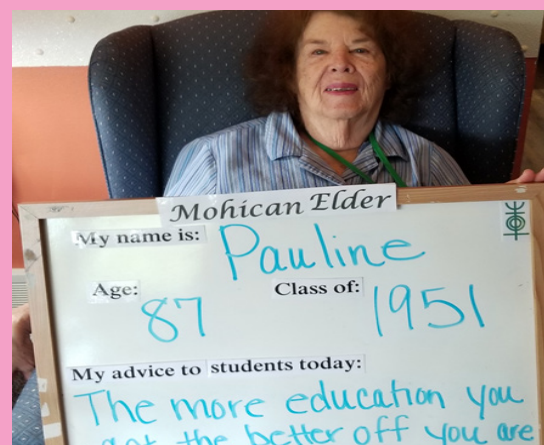 Mohican Elder
My name is: Pauline
Age: 87 Class of: 1951
My advice to students today:
The more education you
get the better off you are